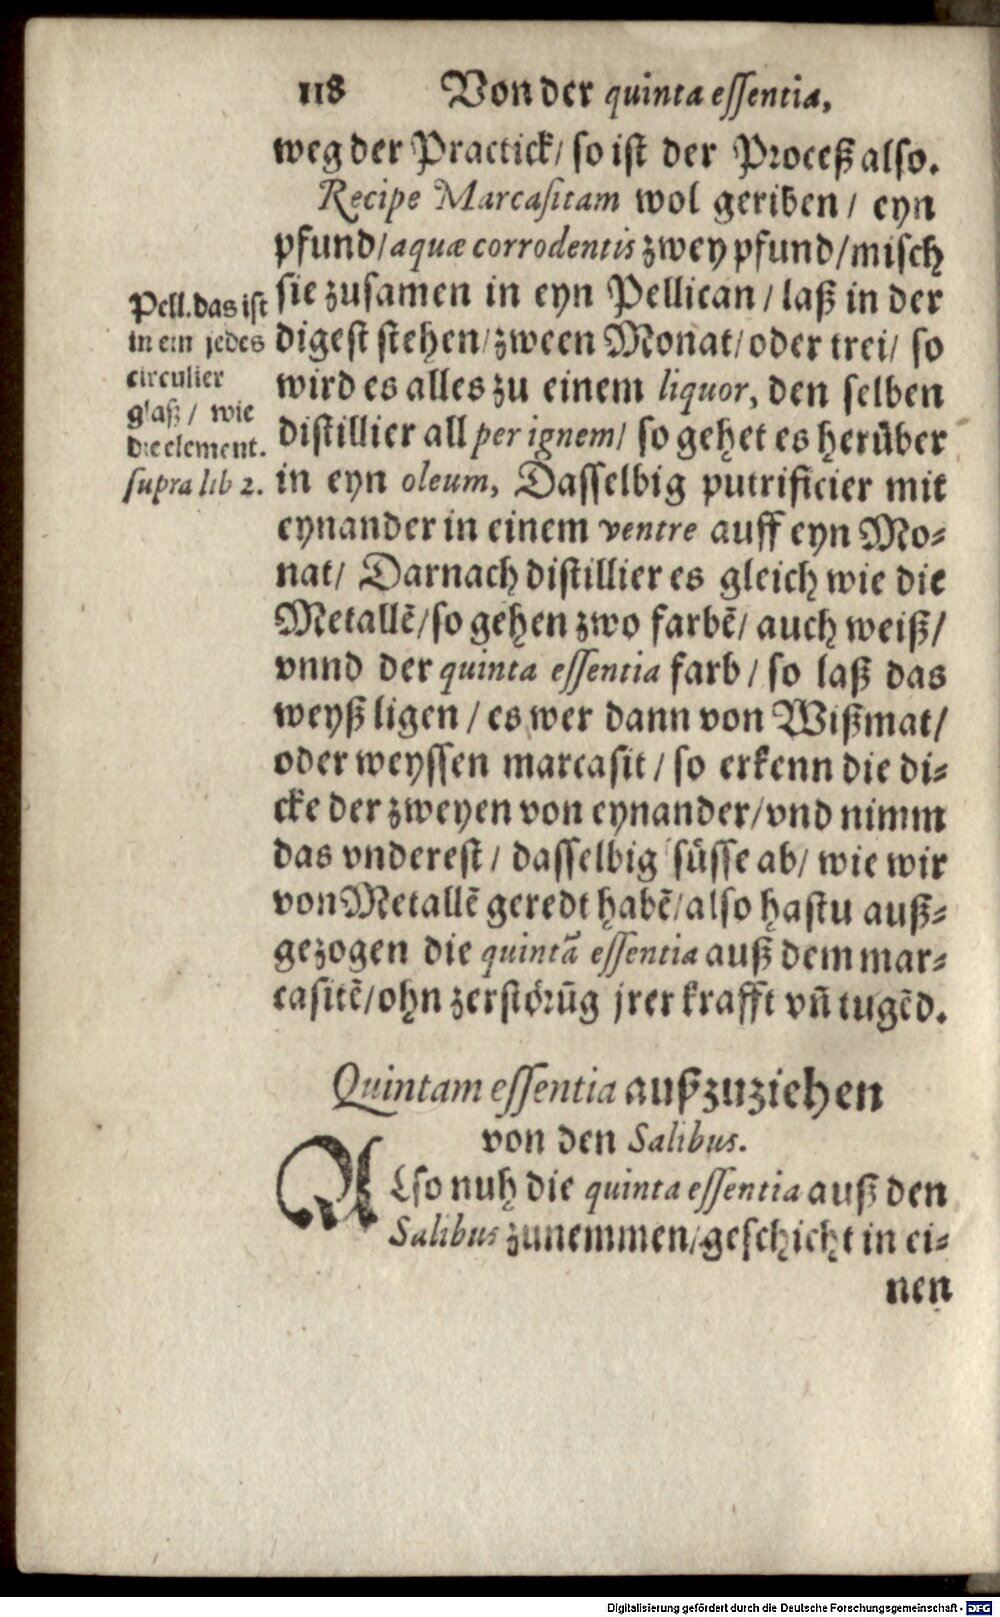 118 Von der quinta essentia,
weg der Practick/ so ist der Proceß also.
Recipe Marcasitam wol geriben/ eyn
pfund/aquæ corrodentis zwey pfund/misch
sie zusamen in eyn Pellican/ laß in der
digest stehen/zween Monat/oder trei/ so
wird es alles zu einem liquor, den selben
distillier all per ignem/ so gehet es herüber
in eyn oleum, Dasselbig putrificier mit
eynander in einem ventre auff eyn Mo-
nat/ Darnach distillier es gleich wie die
Metallẽ/so gehen zwo farbẽ/ auch weiß/
vnnd der quinta essentia farb/ so laß das
weyß ligen/ es wer dann von Wißmat/
oder weyssen marcasit/ so erkenn die di-
cke der zweyen von eynander/vnd nimm
das vnderest/ dasselbig süsse ab/ wie wir
von Metallẽ geredt habẽ/also hastu auß-
gezogen die quintã essentia auß dem mar-
casitẽ/ohn zerstörũg jrer krafft vñ tugẽd.
Pell. das ist
in ein jedes
circulier
glaß/ wie
die element.
supra lib 2.
Quintam essentia außzuziehen
von den Salibus.
ALso nuh die quinta essentia auß den
Salibus zunemmen/geschicht in ei-
nen
Digitalisierung gefördert durch die Deutsche Forschungsgemeinschaft - DFG